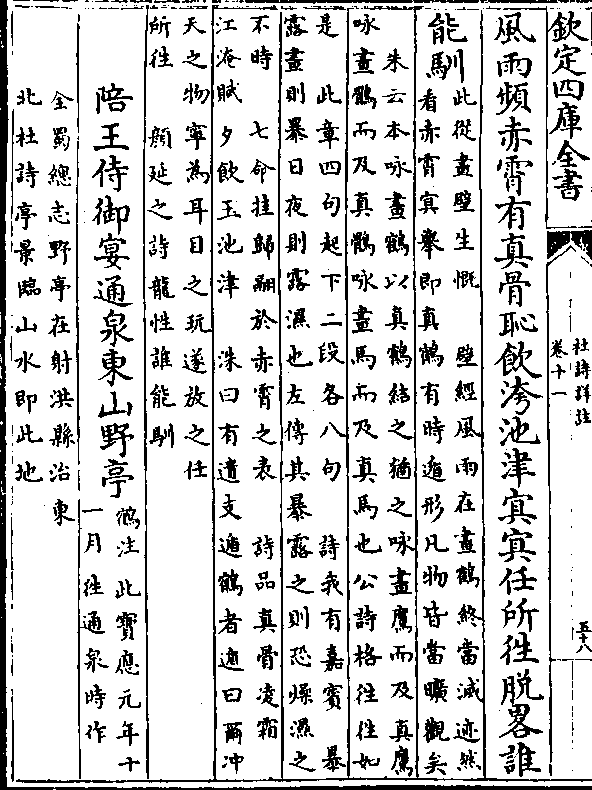 欽定四庫全書
杜詩詳註
卷十一
五十八
風雨頻赤霄有真骨恥飲洿池津冥冥任所往脫畧誰
能馴
此從畫壁生慨 壁經風雨在畫鶴終當滅迹然
看赤霄冥舉即真鶴有時遁形凡物皆當曠觀矣
朱云本咏畫鶴以真鶴結之猶之咏畫鷹而及真鷹
咏畫鶻而及真鶻咏畫馬而及真馬也公詩格往往如
是 此章四句起下二段各八句 詩我有嘉賓 暴
露晝則暴日夜則露濕也左傳其暴露之則恐燥濕之
不時 七命挂歸翮於赤霄之表 詩品真骨凌霜
江淹賦夕飲玉池津 洙曰有遺支遁鶴者遁曰爾冲
天之物寧為耳目之玩遂放之任
所往 顔延之詩龍性誰能馴
陪王侍御宴通泉東山野亭
鶴注此寶應元年十
一月往通泉時作
全蜀總志野亭在射洪縣治東
北杜詩亭景臨山水即此地